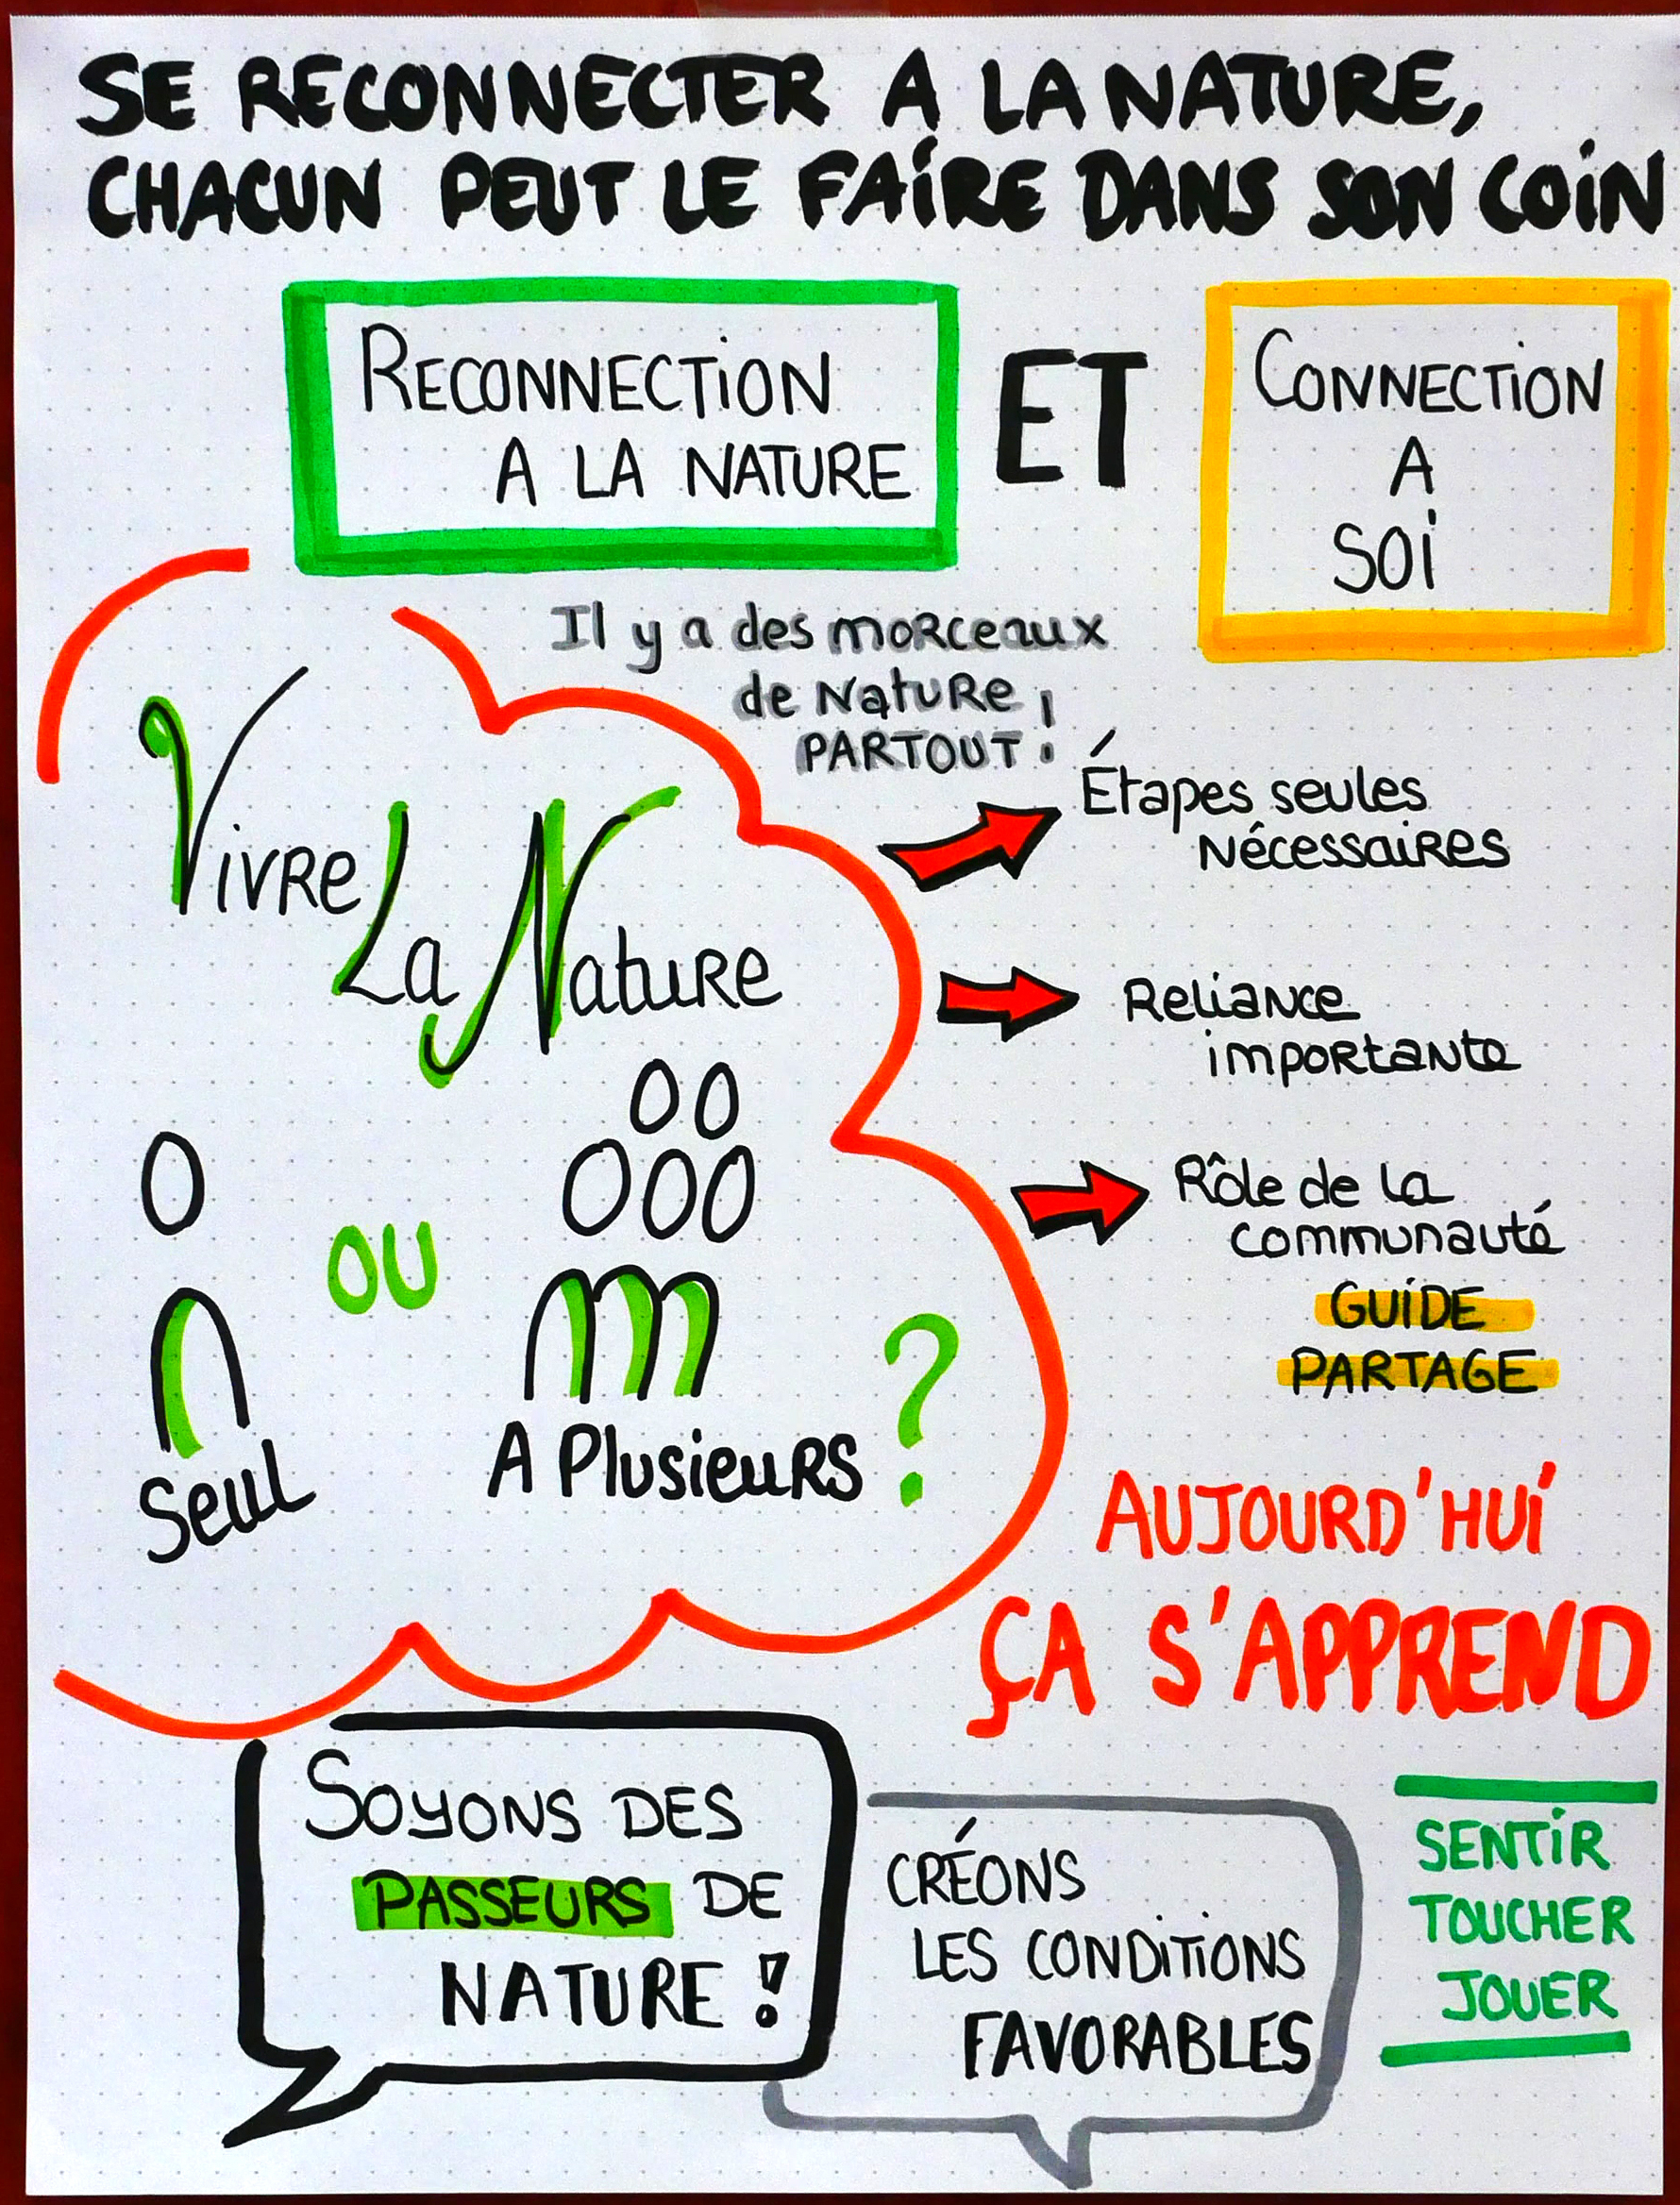 SE RECONNECTER A LA NATURE,
CHACUN PEUT LE FAIRE DANS SON COIN
RECONNECTION
A LA NATURE
ET
CONNECTION
A
SOI
Il y a des morceaux
de Nature
PARTOUT !
Vivre
La Nature
Seul
OU
A Plusieurs
?
Étapes seules
Nécessaires
Reliance
importante
Rôle de la
communauté
GUIDE
PARTAGE
AUJOURD'HUI
ÇA S'APPREND
SOYONS DES
PASSEURS DE
NATURE !
CRÉONS
LES CONDITIONS
FAVORABLES
SENTIR
TOUCHER
JOUER